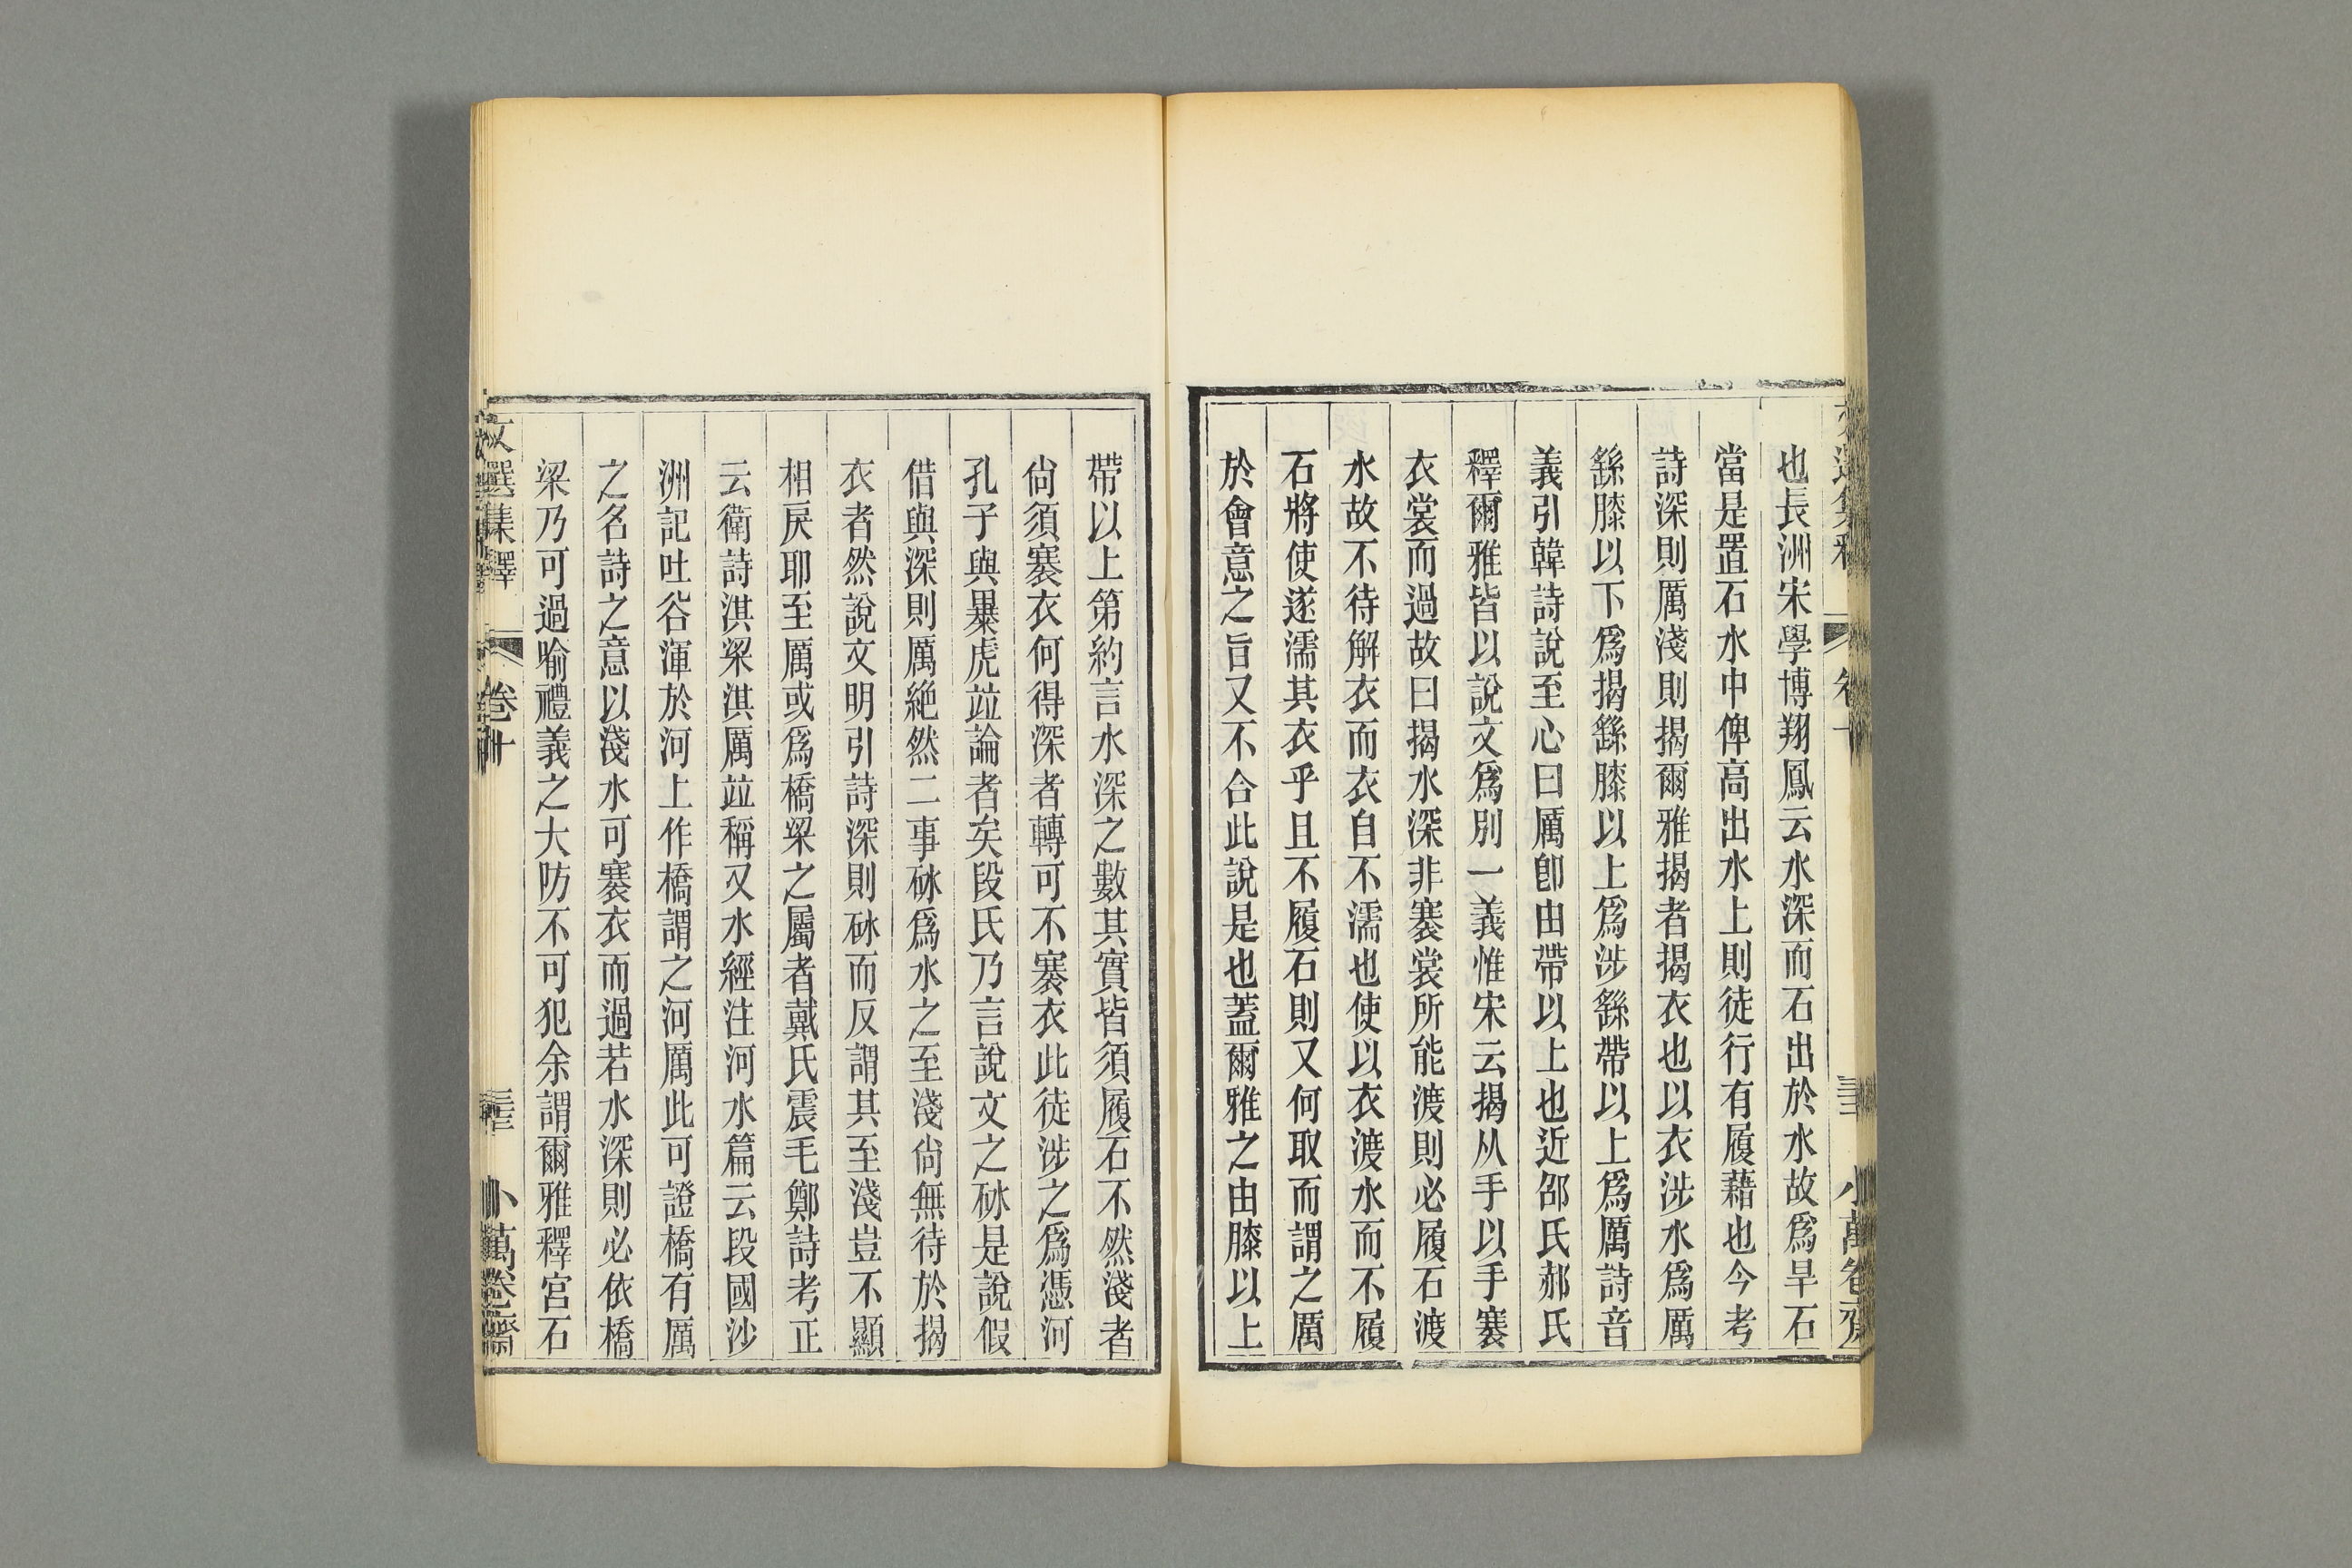 也長洲宋學博翔鳳云水深而石出於水故爲旱石
當是置石水中俾高出水上則徒行有履藉也今考
詩深則厲淺則揭爾雅揭者揭衣也以衣涉水爲厲
繇膝以下爲揭繇膝以上爲涉繇帶以上爲厲詩音
義引韓詩說至心曰厲卽由帶以上也近邵氏郝氏
釋爾雅皆以說文爲別一義惟宋云揭从手以手褰
衣裳而過故曰揭水深非褰裳所能渡則必履石渡
水故不待解衣而衣自不濡也使以衣渡水而不履
石將使遂濡其衣乎且不履石則又何取而謂之厲
於會意之旨又不合此說是也蓋爾雅之由膝以上
帶以上第約言水深之數其實皆須履石不然淺者
尙須褰衣何得深者轉可不褰衣此徒涉之爲憑河
孔子與暴虎竝論者矣段氏乃言說文之砅是說假
借與深則厲絶然二事砅爲水之至淺尙無待於揭
衣者然說文明引詩深則砅而反謂其至淺豈不顯
相戾耶至厲或爲橋梁之屬者戴氏震毛鄭詩考正
云衛詩淇梁淇厲竝稱又水經注河水篇云段國沙
洲記吐谷渾於河上作橋謂之河厲此可證橋有厲
之名詩之意以淺水可褰衣而過若水深則必依橋
梁乃可過喻禮義之大防不可犯余謂爾雅釋宮石
文選集釋 卷十 小萬卷齋